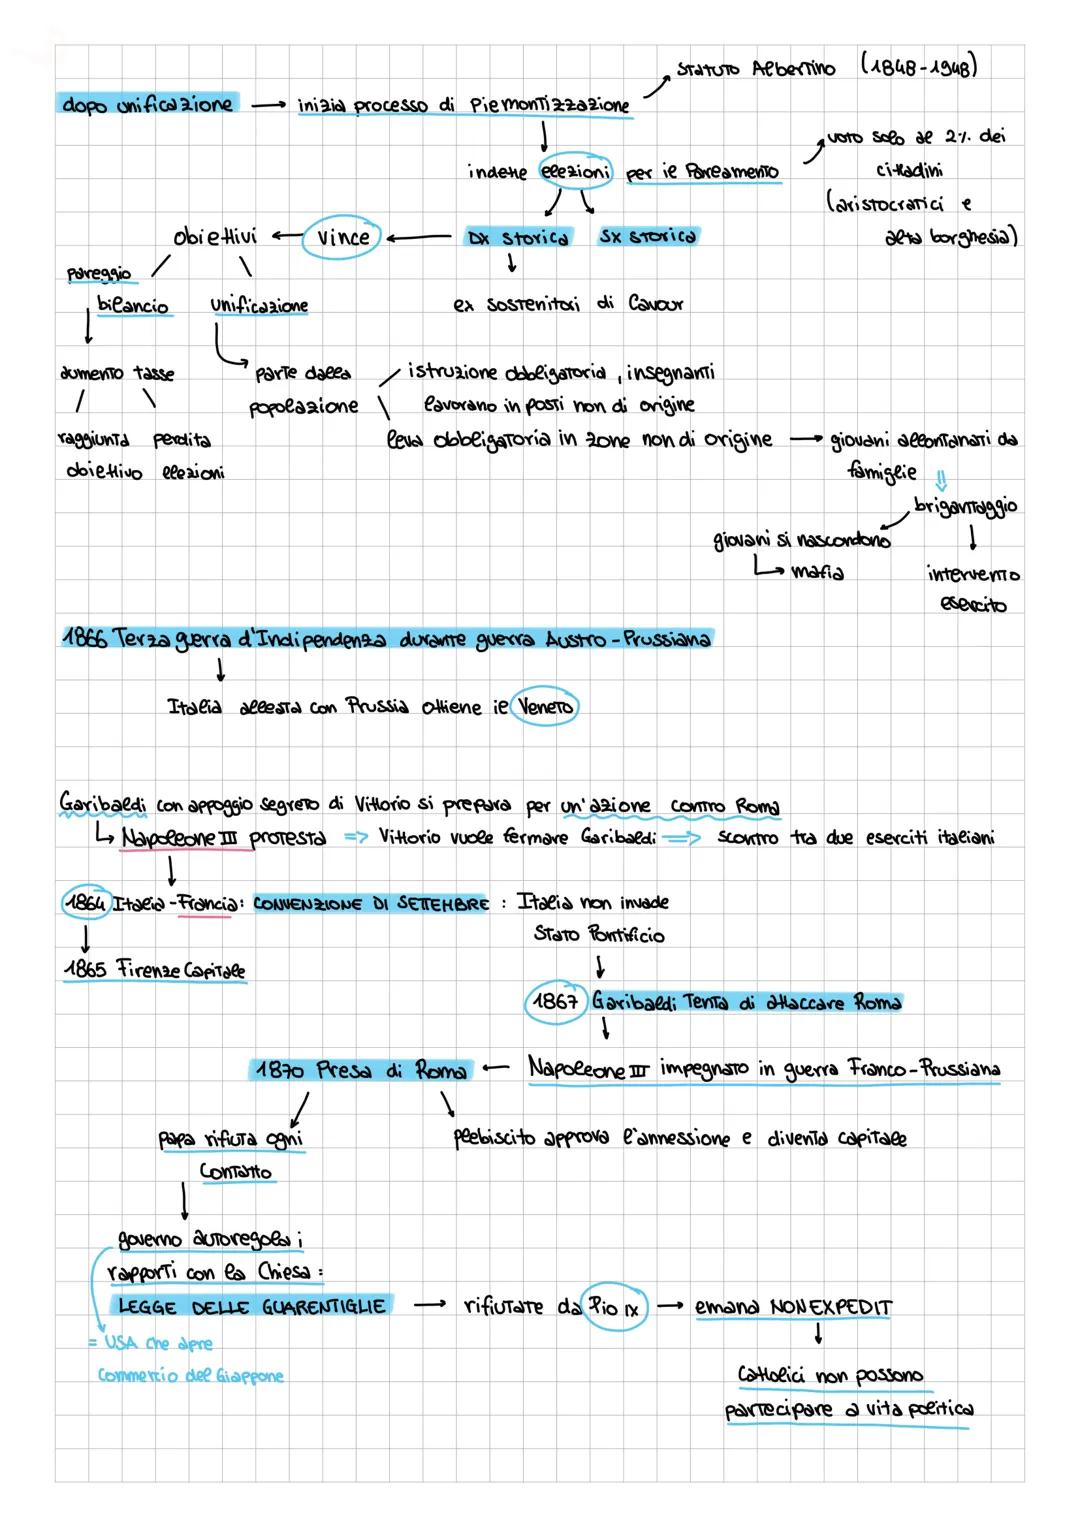 Statuto Albertino (1848-1948)
dopo unificazione → inizia processo di Piemontizzazione
voto solo al 2% dei
indette elezioni per il Parlamento
cittadini
(aristocratici e
obiettivi ← vince ← Dx storica Sx storica
alta borghesia)
pareggio
bilancio unificazione
ex sostenitori di Cavour
aumento tasse
parte dalla
istruzione obbligatoria, insegnanti
popolazione
lavorano in posti non di origine
raggiunta perdita
leva obbligatoria in zone non di origine → giovani allontanati da
obiettivo elezioni
famiglie
brigantaggio
giovani si nascondono
mafia
intervento
esercito
1866 Terza guerra d'Indipendenza durante guerra Austro-Prussiana
Italia alleata con Prussia ottiene il Veneto
Garibaldi con appoggio segreto di Vittorio si prepara per un'azione contro Roma
↳ Napoleone III protesta => Vittorio vuole fermare Garibaldi => scontro tra due eserciti italiani
1864 Italia-Francia: CONVENZIONE DI SETTEMBRE : Italia non invade
Stato Pontificio
1865 Firenze Capitale
1867 Garibaldi Tenta di attaccare Roma
1870 Presa di Roma ← Napoleone III impegnato in guerra Franco-Prussiana
papa rifiuta ogni
contatto
plebiscito approva l'annessione e diventa capitale
governo autoregola i
rapporti con la Chiesa:
LEGGE DELLE GUARENTIGLIE → rifiutate da Pio IX → emana NON EXPEDIT
= USA che apre
commercio del Giappone
Cattolici non possono
partecipare a vita politica